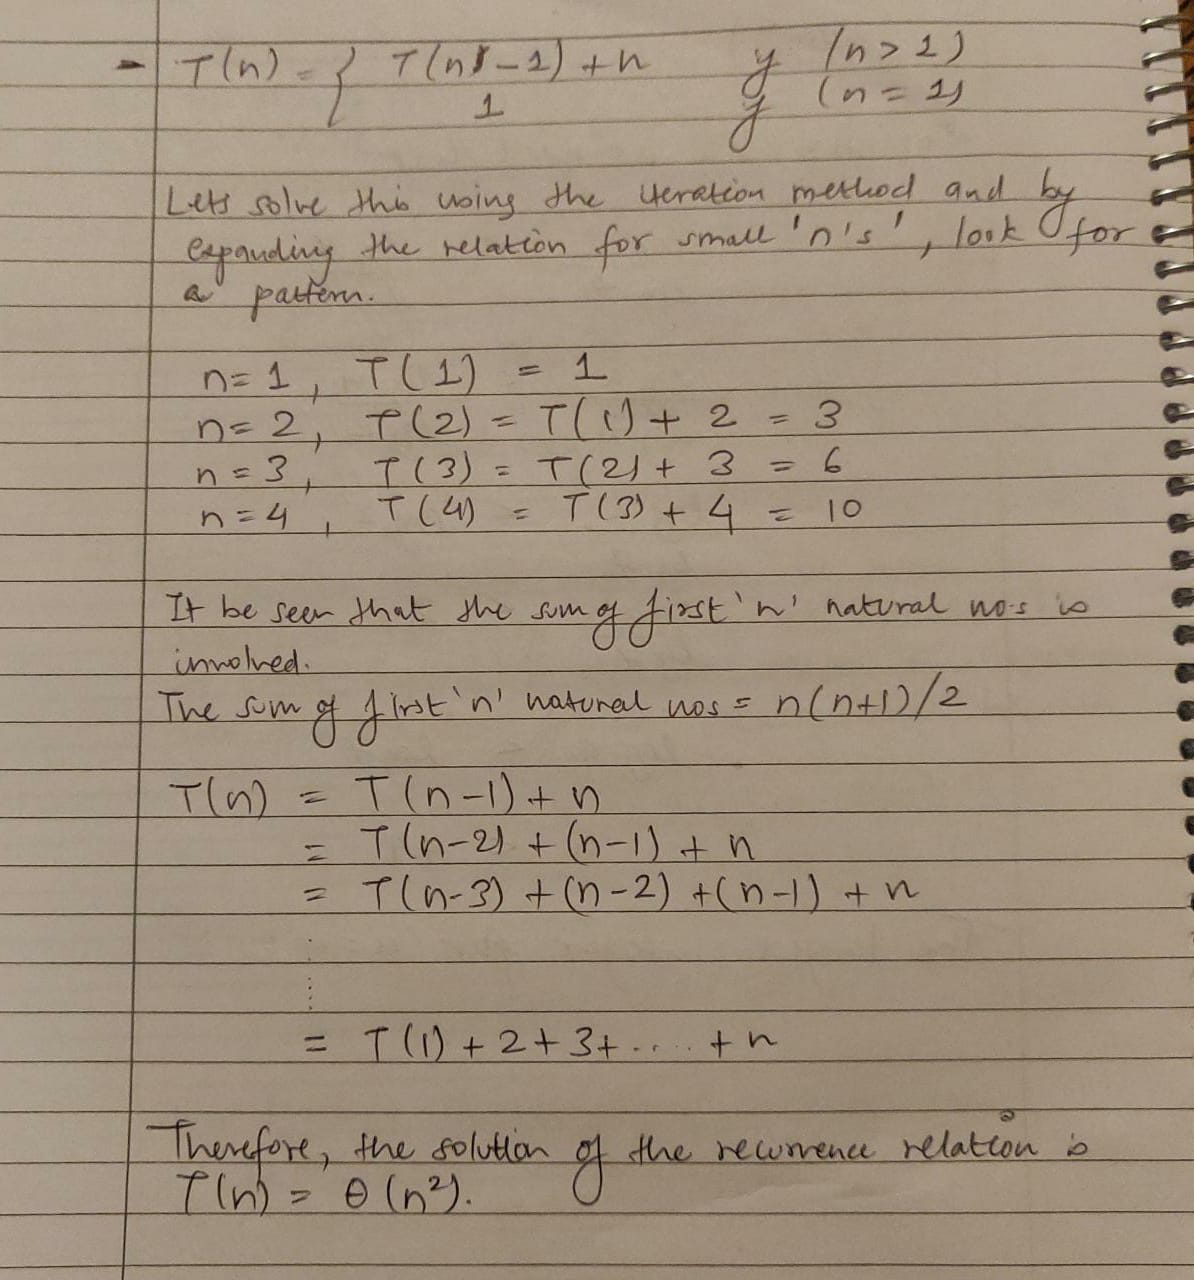 - T(n) = { T(n-1) + n if (n > 1)
1 if (n = 1)
Lets solve this using the iteration method and by
expanding the relation for small 'n's', look for
a pattern.
n= 1, T(1) = 1
n= 2, T(2) = T(1) + 2 = 3
n = 3, T(3) = T(2) + 3 = 6
n = 4, T(4) = T(3) + 4 = 10
It be seen that the sum of first 'n' natural no.s is
involved.
The sum of first 'n' natural nos = n(n+1)/2
T(n) = T(n-1) + n
= T(n-2) + (n-1) + n
= T(n-3) + (n-2) + (n-1) + n
.
....
= T(1) + 2 + 3 + ..... + n
Therefore, the solution of the recurrence relation is
T(n) = θ(n²).